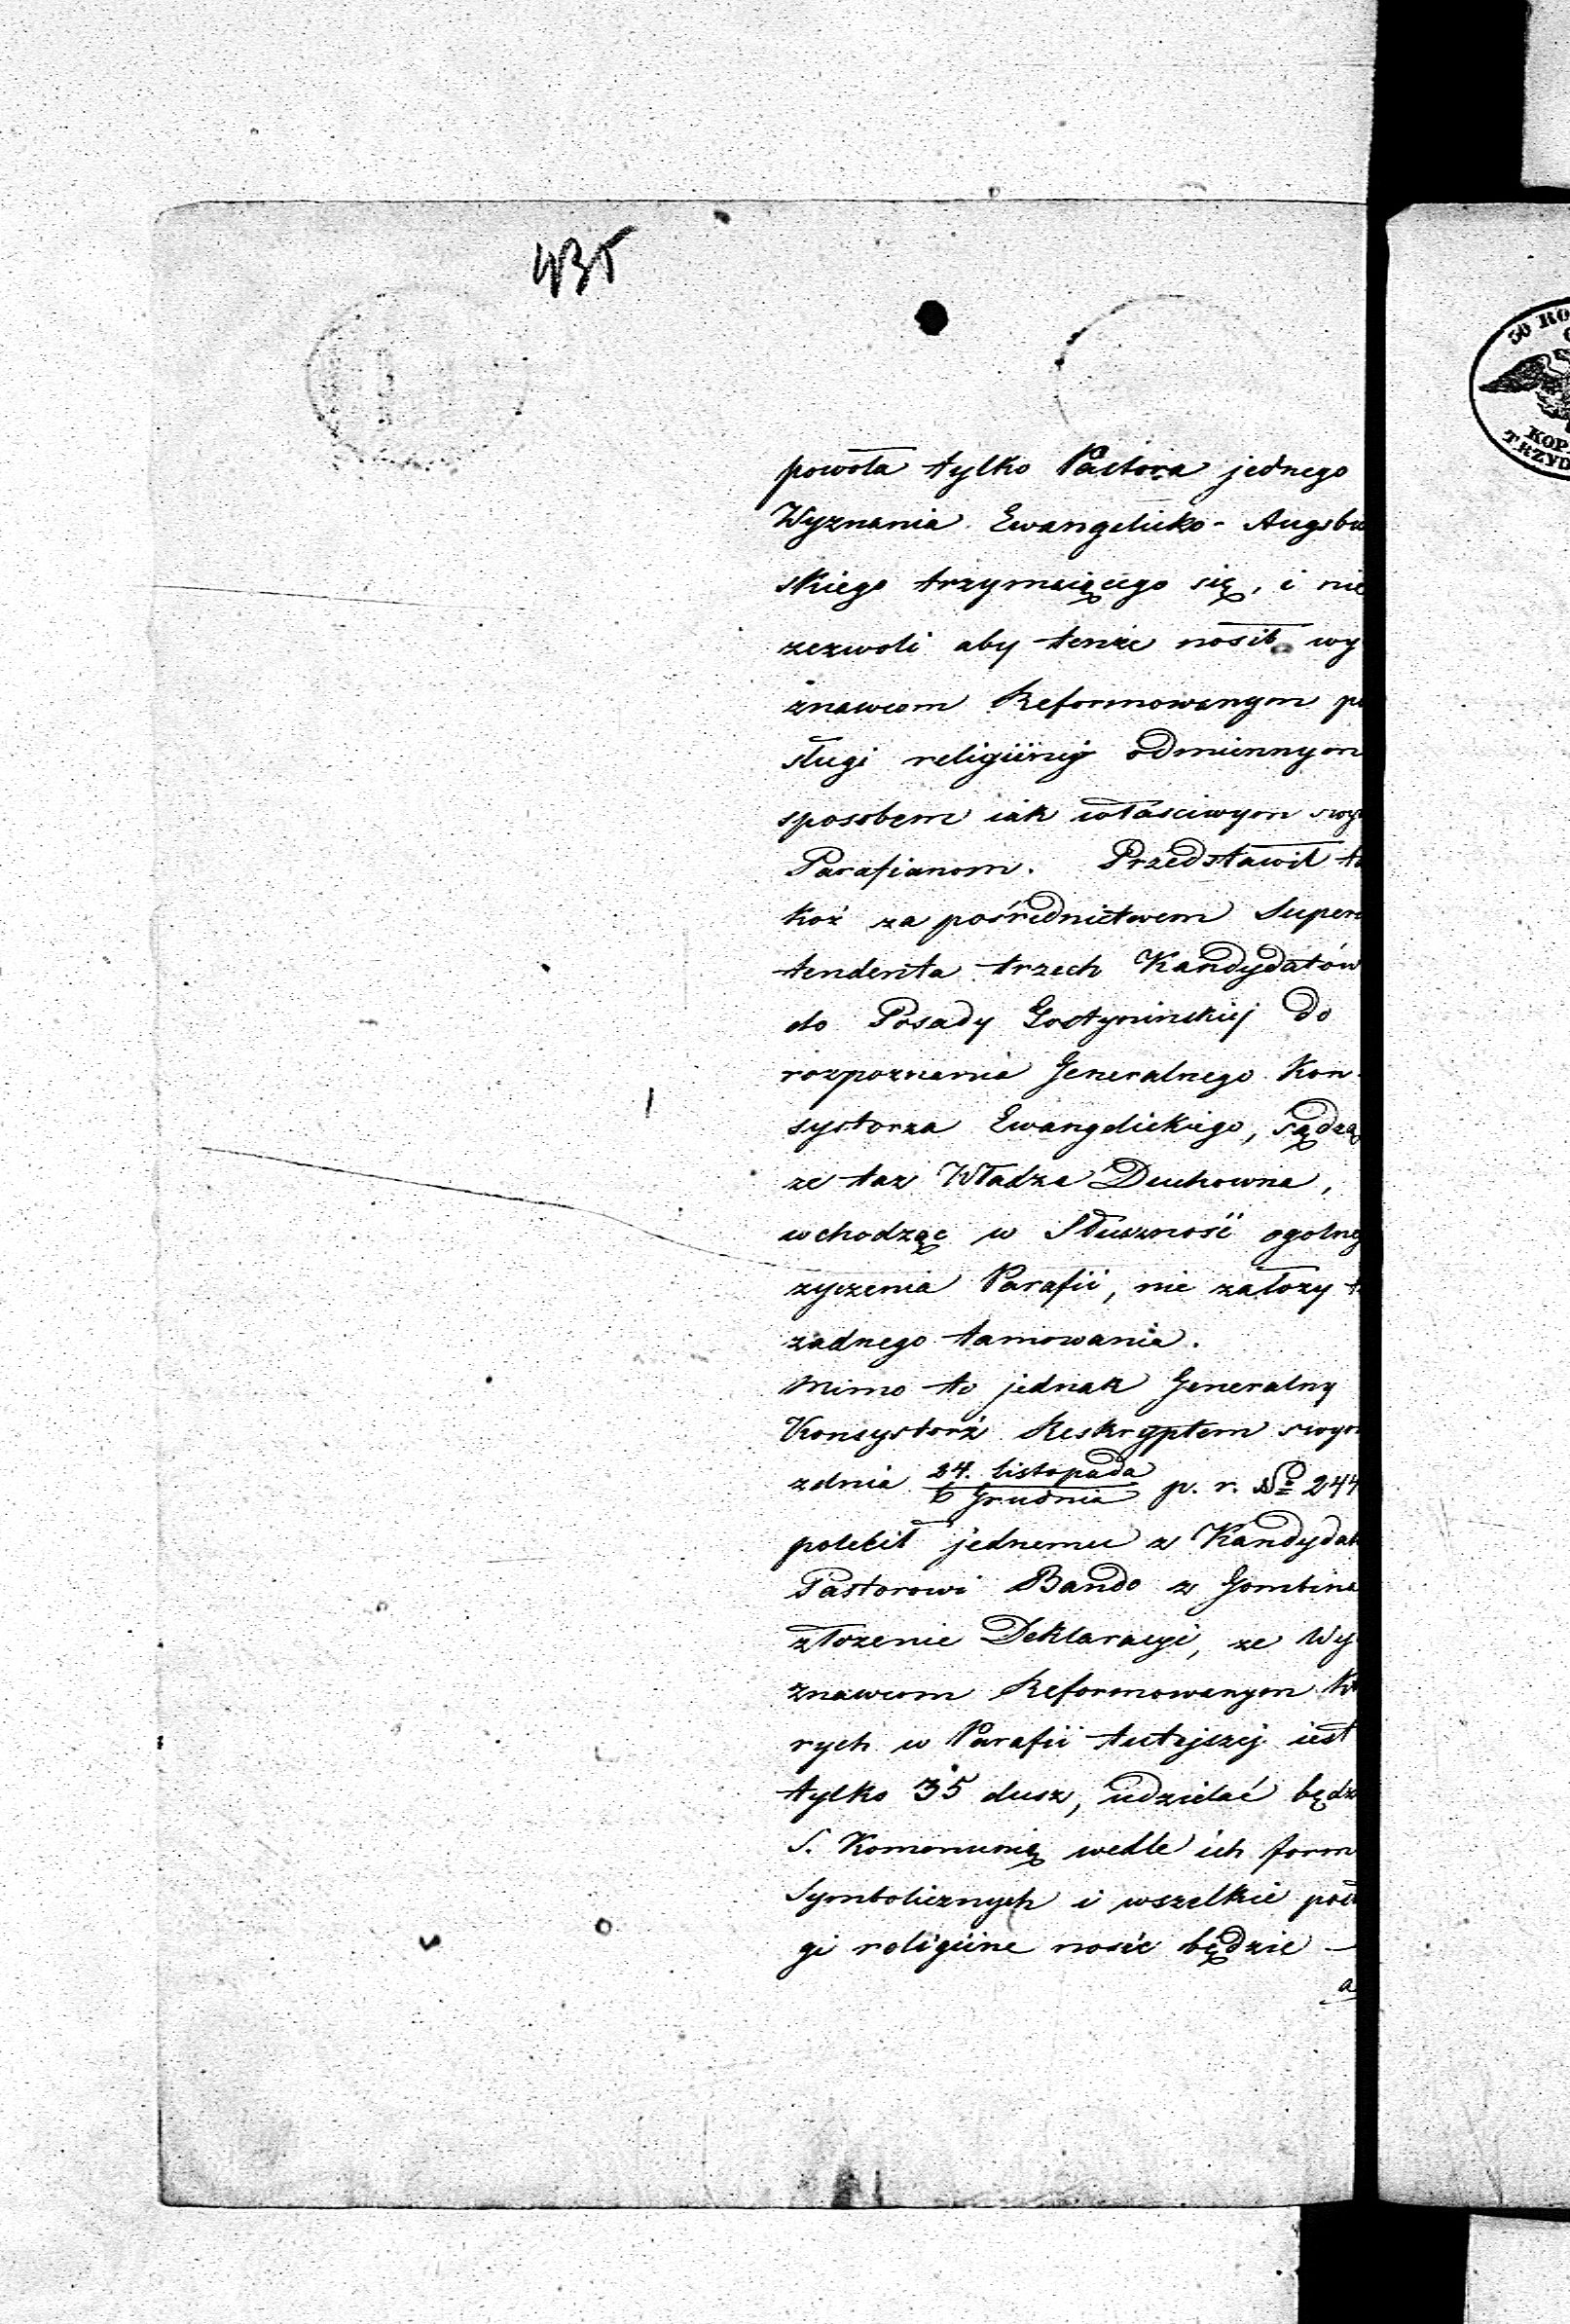 435
powoła tylko Pastora jednego
Wyznania Ewangelicko-Augsbu
skiego trzymaiącego się, i nie
zezwoli aby tenże nosił wy
znawcom Reformowanym
sługi religiiniy odmiennym
sposobem iak właściwym swy
Parafianom. Przedstawił
koż za pośrednictwem Super
tendenta trzech Kandydatów
do Posady Gostyninskiej do
rozpoznania Generalnego Kon-
systorza Ewangelickiego, sądzą
ze taz Władza Duchowna,
wchodząc w Słuszność ogolne
zyczenia Parafii, nie załozy
zadnego tamowania.
Mimo to jednak Generalny
Konsystorz Reskryptem swym
zdnia 24. listopada
6 Grudnia p. r. No 244
polecił jednemu z Kandydat
Pastorowi Bando z Gombina
złozenie Deklaracyi, ze Wy
znawcom Reformowanym Kt
rych w Parafii tutejszej iest
tylko 35 dusz, udzielać będz
S. Kommunią wedle ich form
Symbolicznych i wszelkie posł
gi religiine nosić będzie —
a
50 KO
KOP.
TRZYD